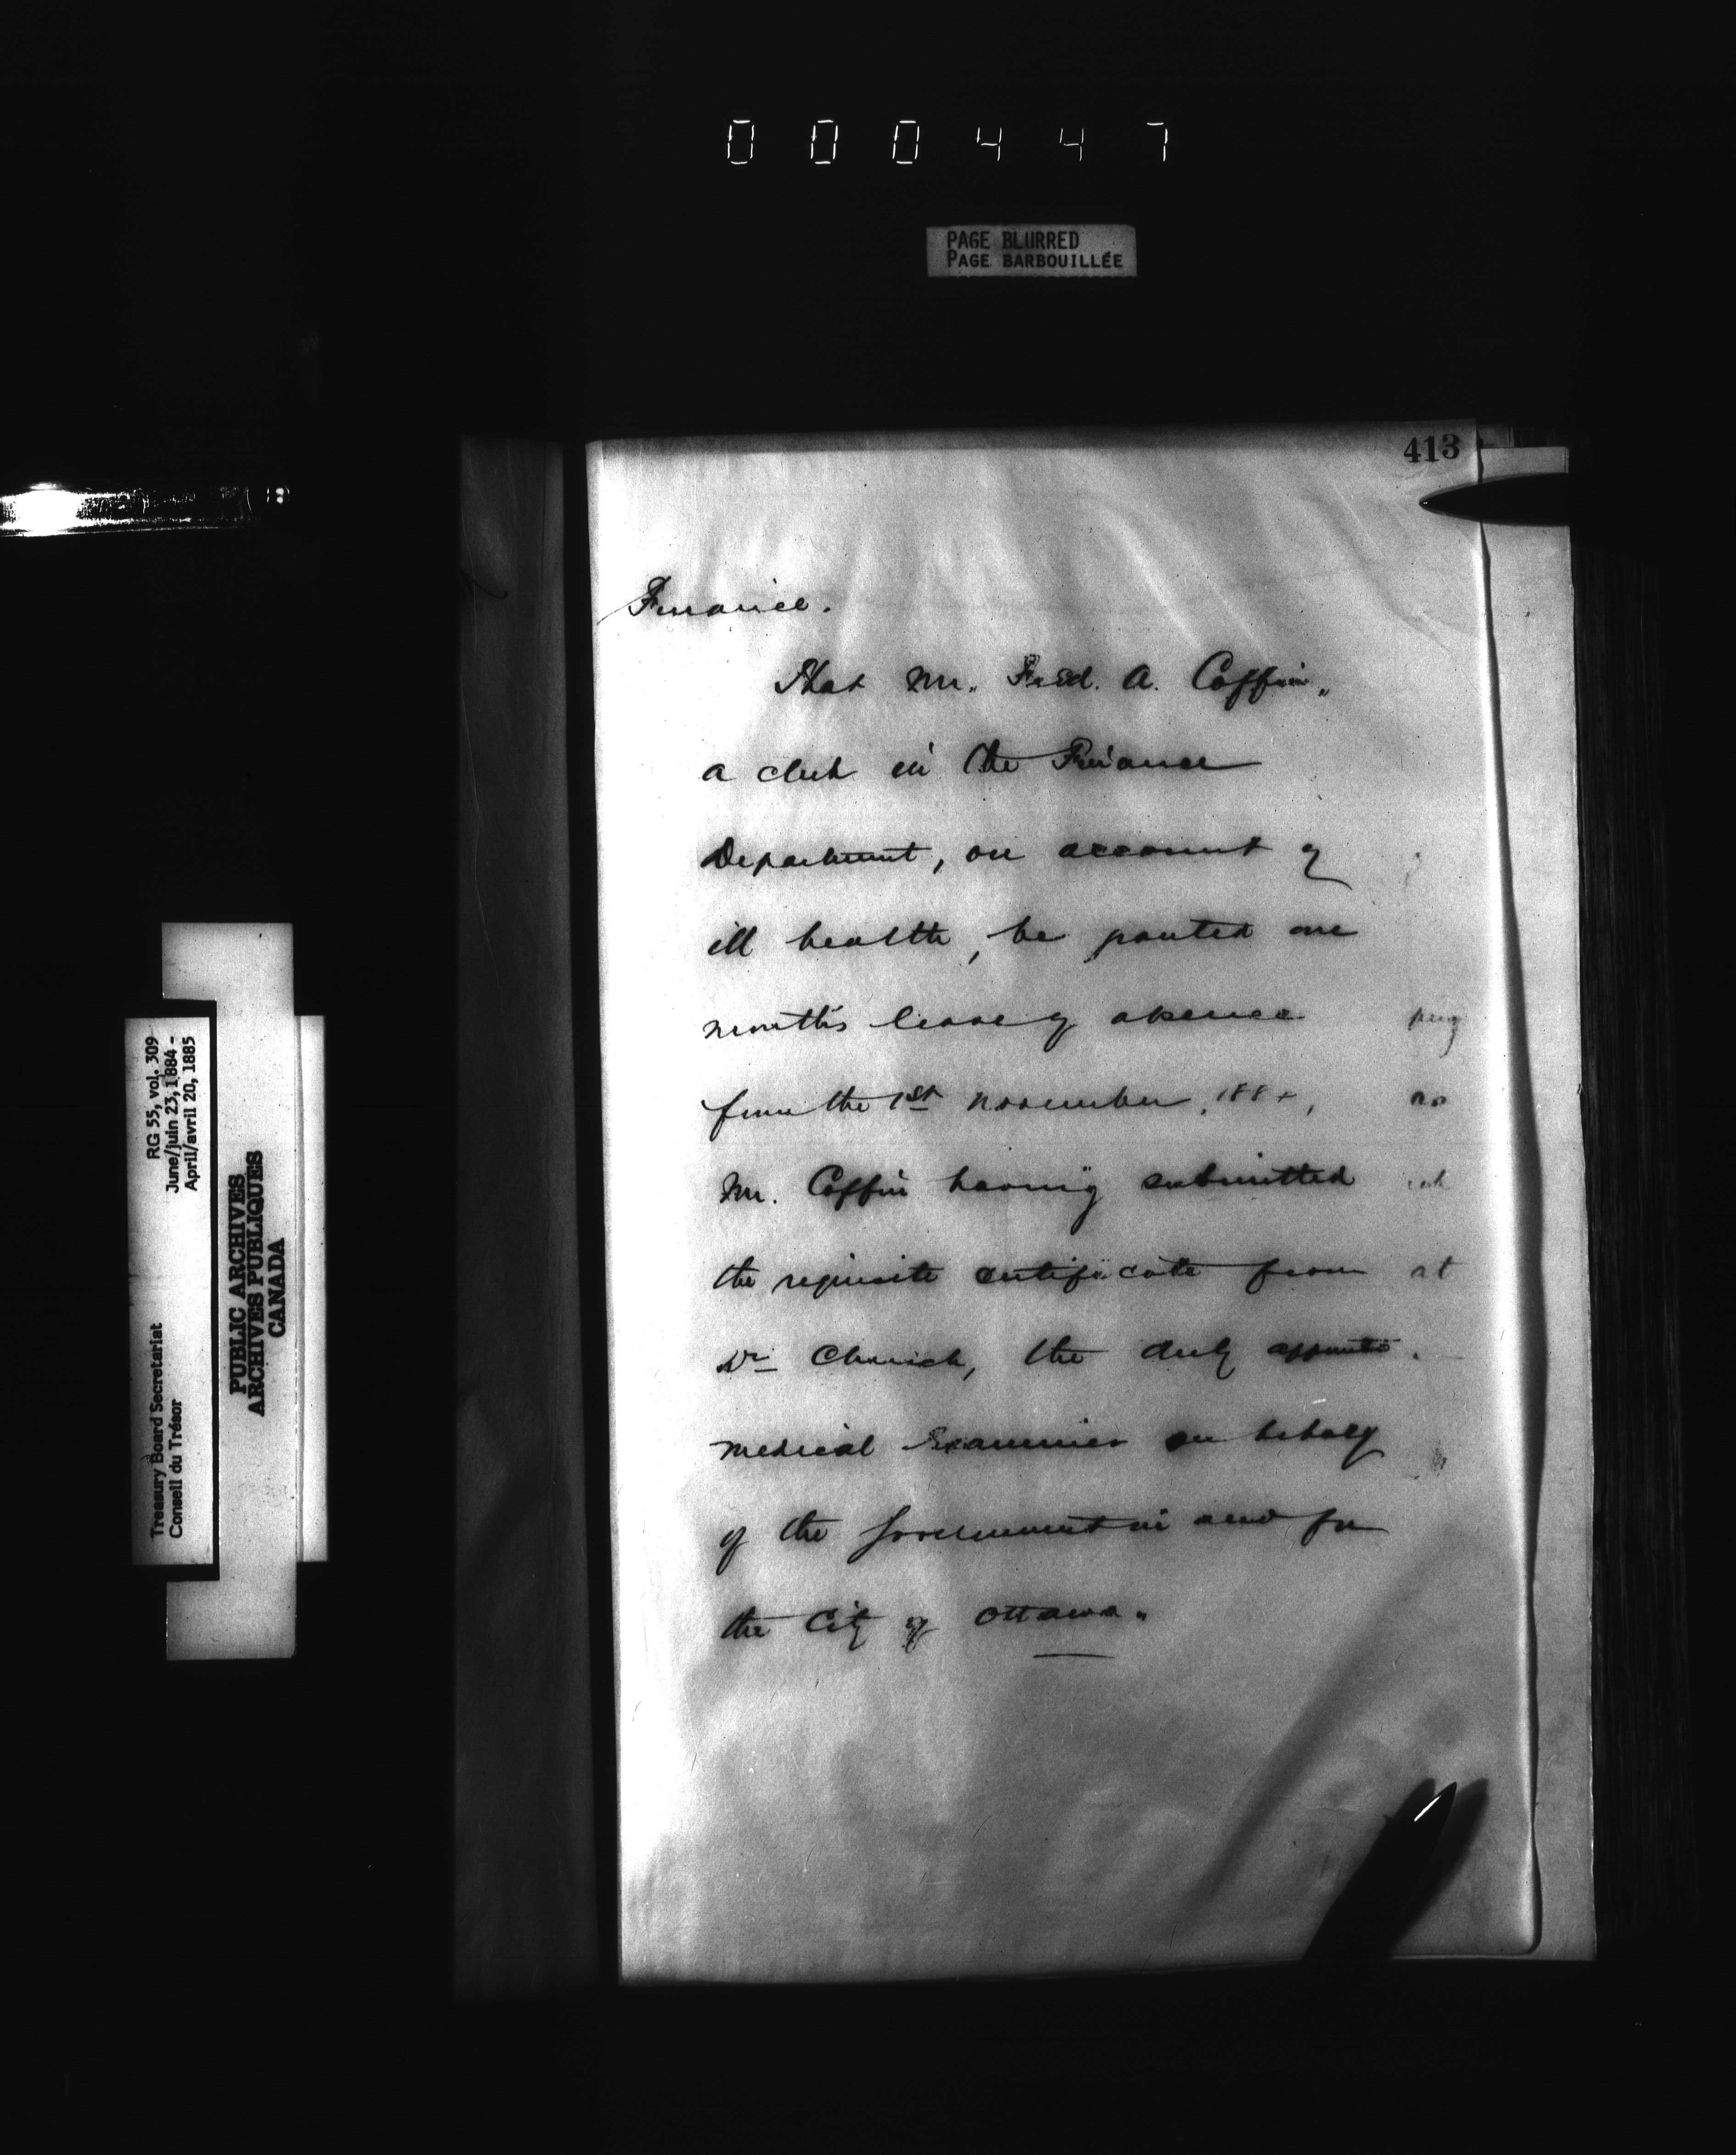 000447
PAGE BLURRED
PAGE BARBOUILLÉE
413
Finance.
That Mr. Fred. A. Coffin,
a clerk in the Finance
Department, on account of
ill health, be granted one
month's leave of absence
from the 1st November, 1884,
Mr. Coffin having submitted
the requisite certificate from
Dr Church, the duly appointed
medical Examiner on behalf
of the Government in and for
the City of Ottawa.
at
RG 55, vol. 309
June/juin 23, 1884 -
April/avril 20, 1885
Treasury Board Secretariat
Conseil du Trésor
PUBLIC ARCHIVES
ARCHIVES PUBLIQUES
CANADA